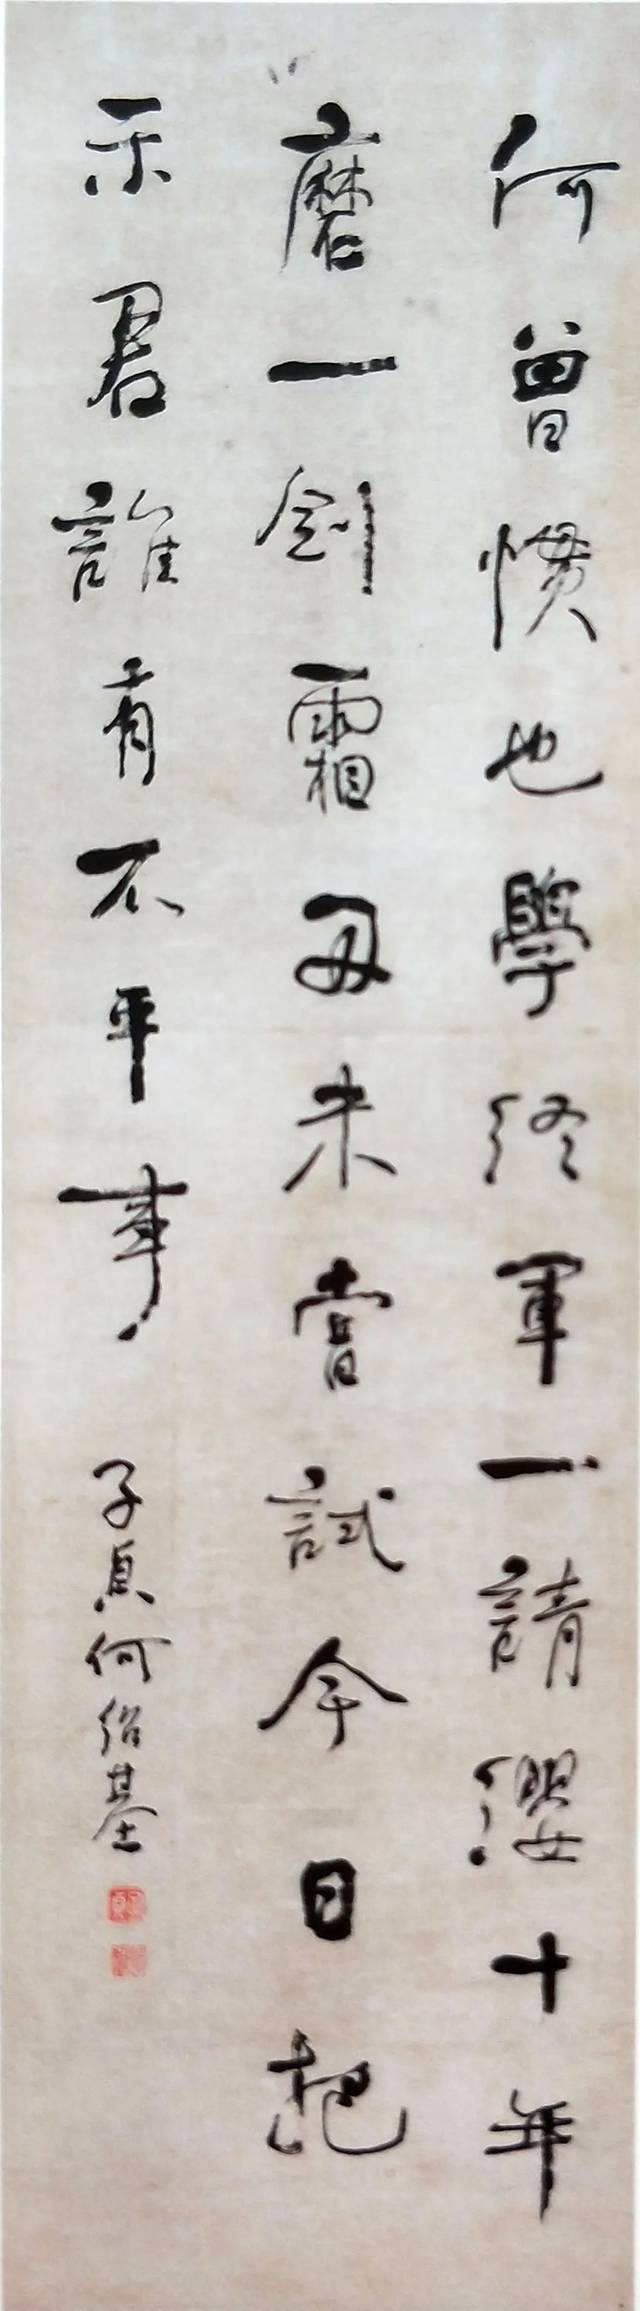 何曾惯也學终軍一請纓十年
磨一劍霜刃未嘗試今日把
示君誰有不平事
子貞何绍基